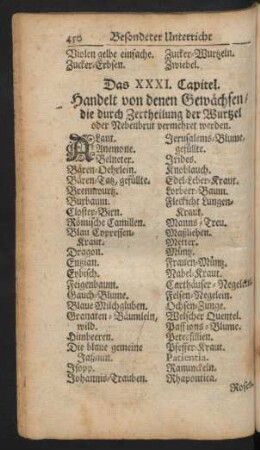 450 Besonderer Unterricht
Violen gelbe einfache.
Zucker/Erbsen.
Zucker/Wurtzeln.
Zwiebel.
Das XXXI. Capitel.
Handelt von denen Gewächsen/
die durch Zertheilung der Wurtzel
oder Nebenbrut vermehret werden.
ALant.
Anemone.
Belneter.
Bären-Oehrlein.
Bären-Tatz, gefüllte.
Brennwurtz.
Buxbaum.
Closter-Birn.
Römische Camillen.
Blau Cypressen-
Kraut.
Dragon.
Entzian.
Eybisch.
Feigenbaum.
Gauch-Blume.
Blaue Milchgluben.
Granaten-Bäumlein,
wild.
Himbeeren.
Die blaue gemeine
Jasmin.
Jsopp.
Johannis-Trauben.
Jerusalems-Blume,
gefüllte.
Jrides.
Knoblauch.
Edel-Leber-Kraut.
Lorbeer-Baum.
Fleckicht Lungen-
Kraut.
Manns-Treu.
Maßlieben.
Metter.
Müntz.
Frauen-Müntz.
Nabel-Kraut.
Carthäuser-Negelein.
Felsen-Negelein.
Ochsen-Zunge.
Welscher Quentel.
Passions-Blume.
Petersilien.
Pfeffer-Kraut.
Patientia.
Ranunckeln.
Rhapontica.
Rosen-